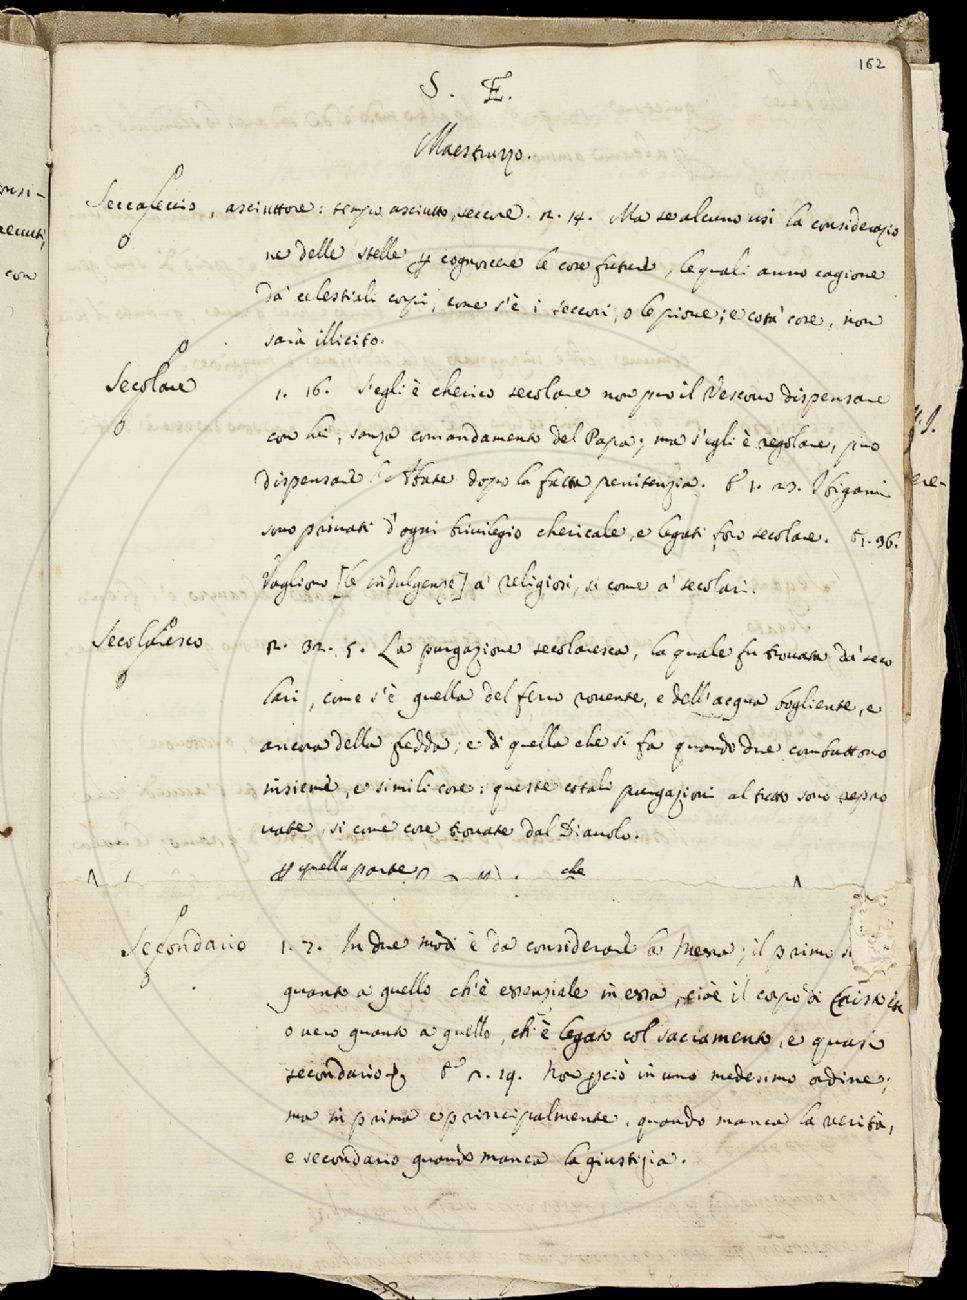 162
S. E.
Maestruzzo.
asciuttore: tempo asciutto, seccore. 2. 14. Ma se alcuno usi la considerazio
ne delle stelle per cognoscere le cose future, le quali anno cagione
da' celestiali corpi, come s'è i seccori, o le piove; e cota' cose, non
sarà illicito.
Secolare 1. 16. S'egli è cherico secolare non può il Vescovo dispensare
con lui, sanza comandamento del Papa; ma s'egli è regolare, può
dispensare l'Abate dopo la fatta penitenzia. E 1. 23. I bigami
sono privati d'ogni privilegio chericale, e legati foro secolare. E 1. 36.
Vagliono [le indulgenze] a' religiosi, si come a' secolari.
Secolaresco 2. 32. 5. La purgazione secolaresca, la quale fu trovata da' seco
lari, come s'è quella del ferro rovente, e dell'acqua bogliente, e
ancora della fredda, e di quella che si fa quando due combattono
insieme, e simili cose: queste cotali purgazioni al tutto sono repro
vate, si come cose trovate dal Diavolo.
per quella parte che
Secondario 1. 7. In due modi è da considerare la Messa; il primo si
quanto a quello ch'è essenziale in essa, cioè il corpo di Cristo
o vero quanto a quello, ch'è legato col sacramento, e quasi
secondario. E 2. 19. Non perciò in uno medesimo ordine;
ma in prima e principalmente, quando manca la verità,
e secondario quando manca la giustizia.